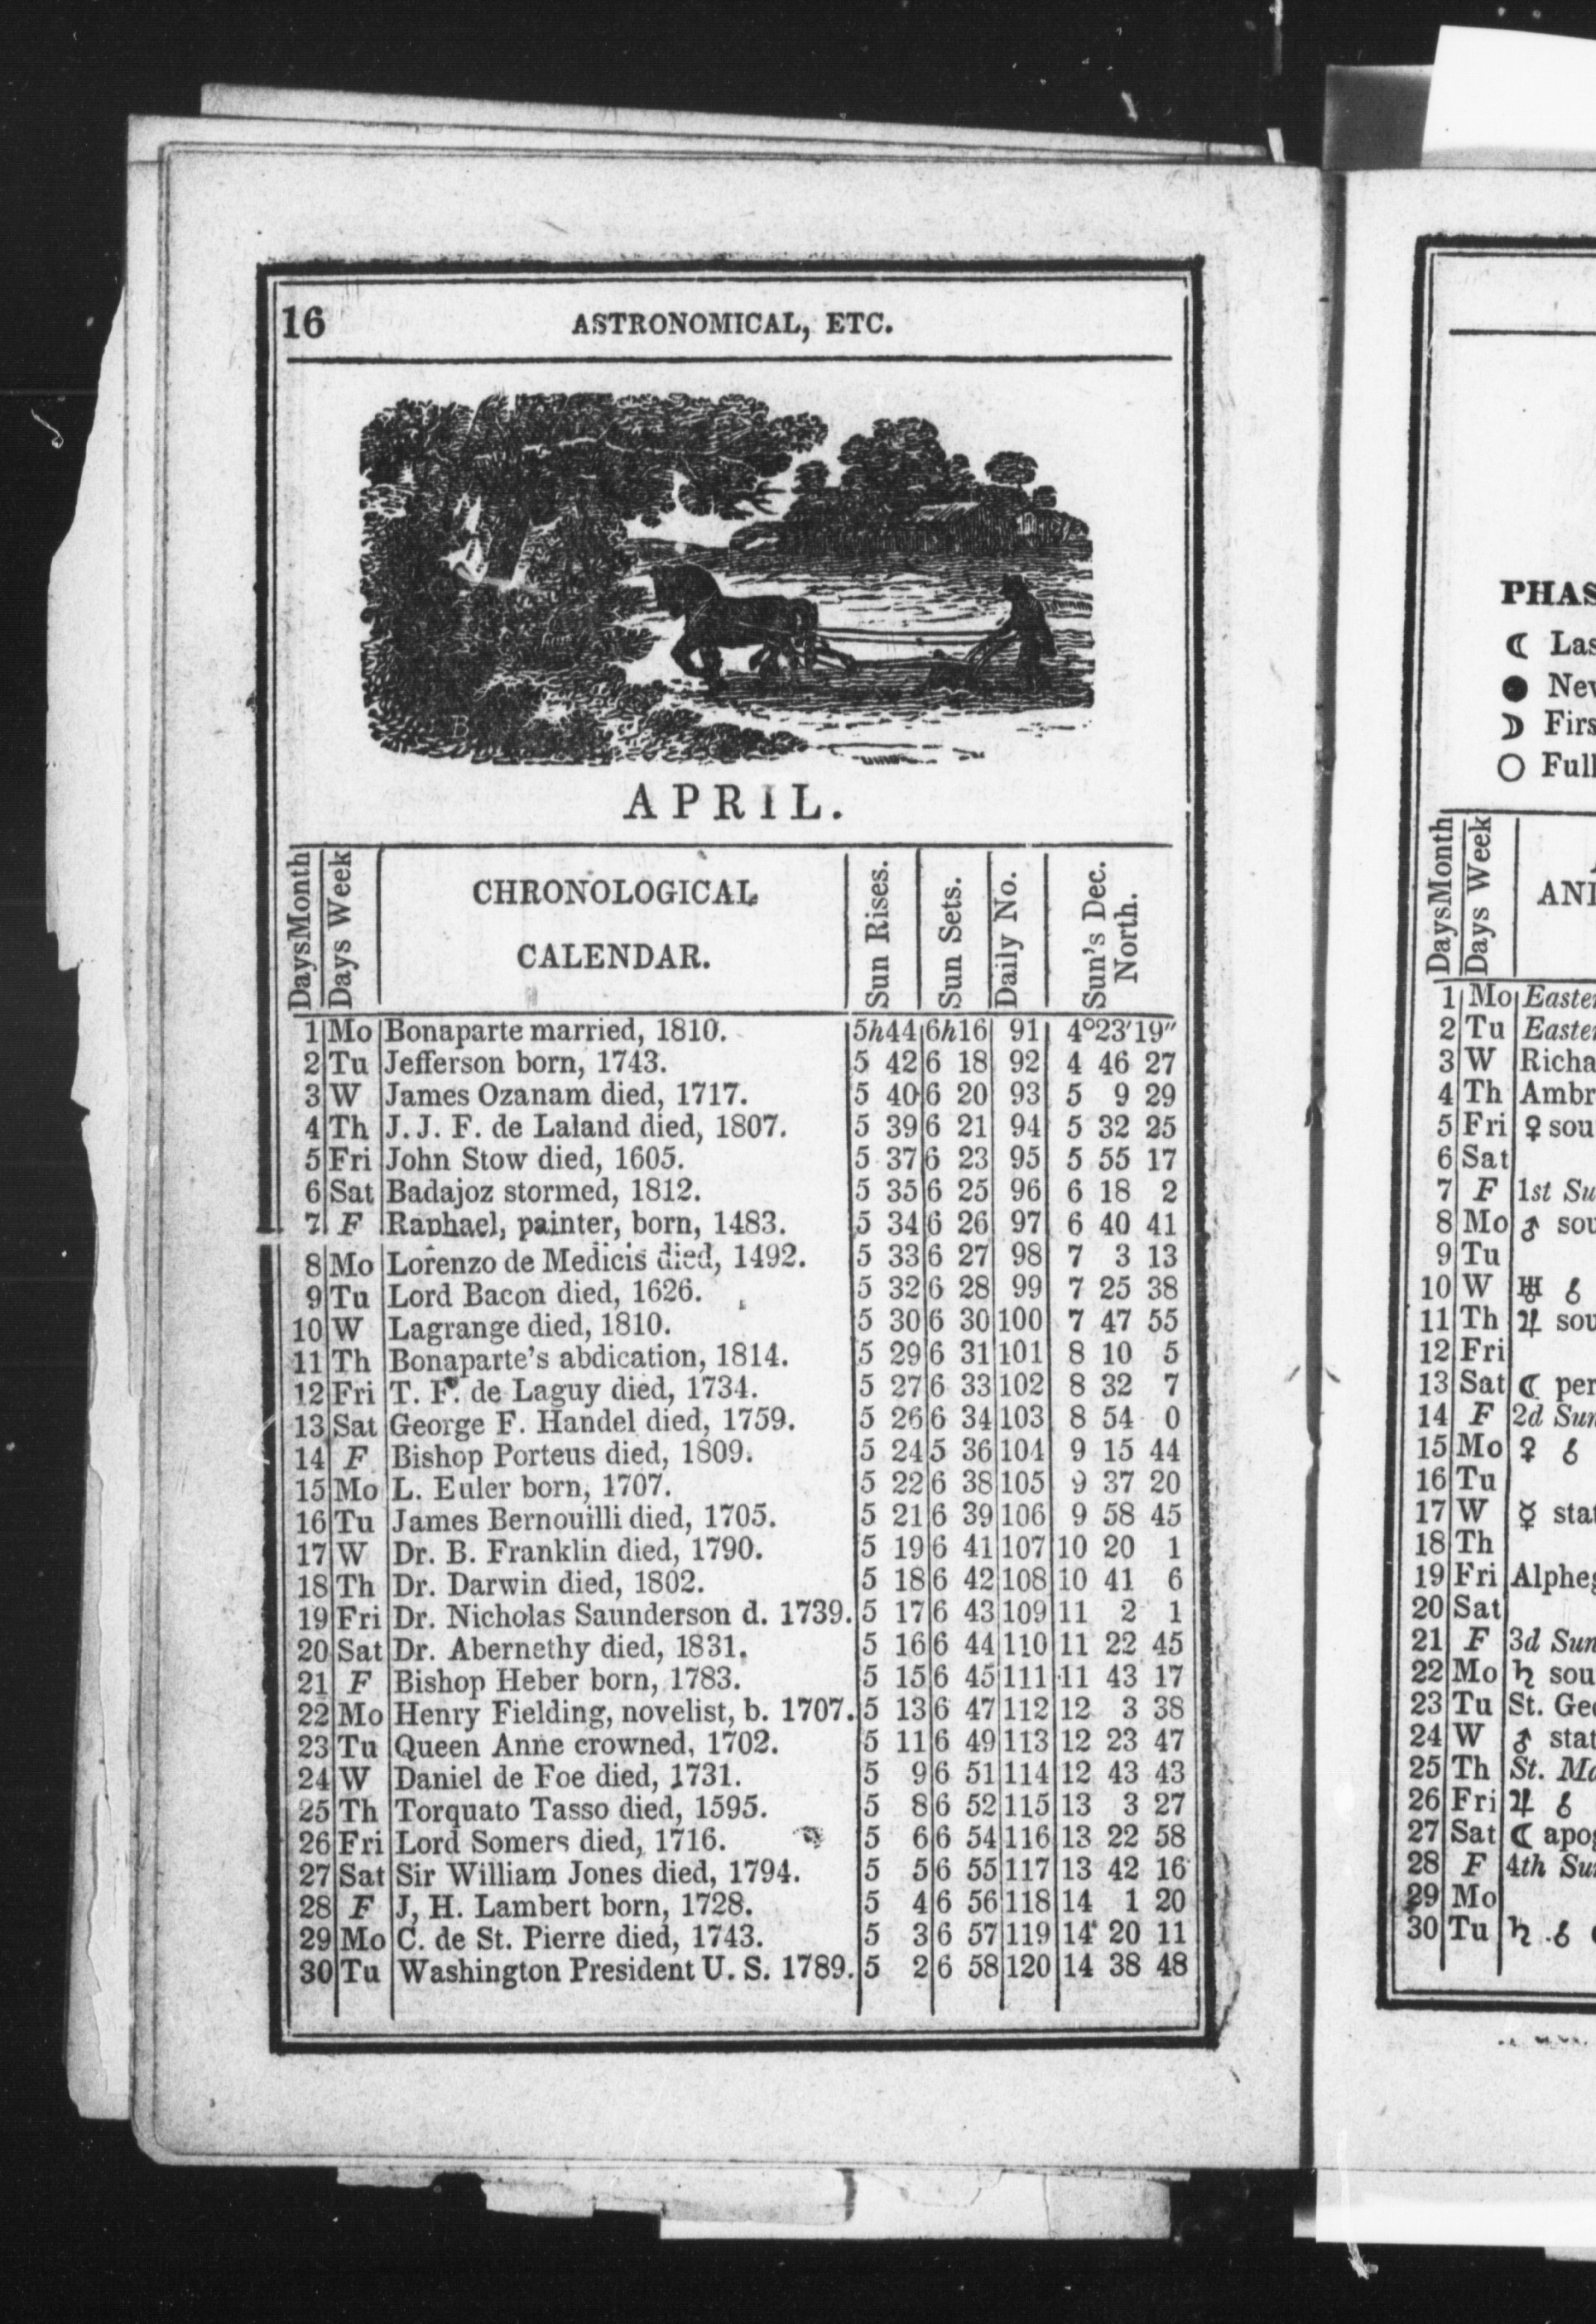 16
ASTRONOMICAL, ETC.
APRIL.
DaysMonth
Days Week
CHRONOLOGICAL
CALENDAR.
Sun Rises.
Sun Sets.
Daily No.
Sun's Dec.
North.
1 Mo Bonaparte married, 1810. 5h44 6h16 91 4°23'19"
2 Tu Jefferson born, 1743. 5 42 6 18 92 4 46 27
3 W James Ozanam died, 1717. 5 40 6 20 93 5 9 29
4 Th J. J. F. de Laland died, 1807. 5 39 6 21 94 5 32 25
5 Fri John Stow died, 1605. 5 37 6 23 95 5 55 17
6 Sat Badajoz stormed, 1812. 5 35 6 25 96 6 18 2
7 F Raphael, painter, born, 1483. 5 34 6 26 97 6 40 41
8 Mo Lorenzo de Medicis died, 1492. 5 33 6 27 98 7 3 13
9 Tu Lord Bacon died, 1626. 5 32 6 28 99 7 25 38
10 W Lagrange died, 1810. 5 30 6 30 100 7 47 55
11 Th Bonaparte's abdication, 1814. 5 29 6 31 101 8 10 5
12 Fri T. F. de Laguy died, 1734. 5 27 6 33 102 8 32 7
13 Sat George F. Handel died, 1759. 5 26 6 34 103 8 54 0
14 F Bishop Porteus died, 1809. 5 24 5 36 104 9 15 44
15 Mo L. Euler born, 1707. 5 22 6 38 105 9 37 20
16 Tu James Bernouilli died, 1705. 5 21 6 39 106 9 58 45
17 W Dr. B. Franklin died, 1790. 5 19 6 41 107 10 20 1
18 Th Dr. Darwin died, 1802. 5 18 6 42 108 10 41 6
19 Fri Dr. Nicholas Saunderson d. 1739. 5 17 6 43 109 11 2 1
20 Sat Dr. Abernethy died, 1831. 5 16 6 44 110 11 22 45
21 F Bishop Heber born, 1783. 5 15 6 45 111 11 43 17
22 Mo Henry Fielding, novelist, b. 1707. 5 13 6 47 112 12 3 38
23 Tu Queen Anne crowned, 1702. 5 11 6 49 113 12 23 47
24 W Daniel de Foe died, 1731. 5 9 6 51 114 12 43 43
25 Th Torquato Tasso died, 1595. 5 8 6 52 115 13 3 27
26 Fri Lord Somers died, 1716. 5 6 6 54 116 13 22 58
27 Sat Sir William Jones died, 1794. 5 5 6 55 117 13 42 16
28 F J, H. Lambert born, 1728. 5 4 6 56 118 14 1 20
29 Mo C. de St. Pierre died, 1743. 5 3 6 57 119 14 20 11
30 Tu Washington President U. S. 1789. 5 2 6 58 120 14 38 48
PHAS
☾ Las
● Nev
☽ Firs
○ Full
DaysMonth
Days Week
ANI
1 Mo Easte
2 Tu Easte
3 W Richa
4 Th Ambr
5 Fri ♀ sou
6 Sat
7 F 1st Su
8 Mo ♂ sou
9 Tu
10 W ♅ ☌
11 Th ♃ sou
12 Fri
13 Sat ☾ per
14 F 2d Sun
15 Mo ♀ ☌
16 Tu
17 W ☿ stat
18 Th
19 Fri Alpheg
20 Sat
21 F 3d Sun
22 Mo ♄ sou
23 Tu St. Geo
24 W ♂ stat
25 Th St. Ma
26 Fri ♃ ☌
27 Sat ☾ apog
28 F 4th Su
29 Mo
30 Tu ♄ ☌